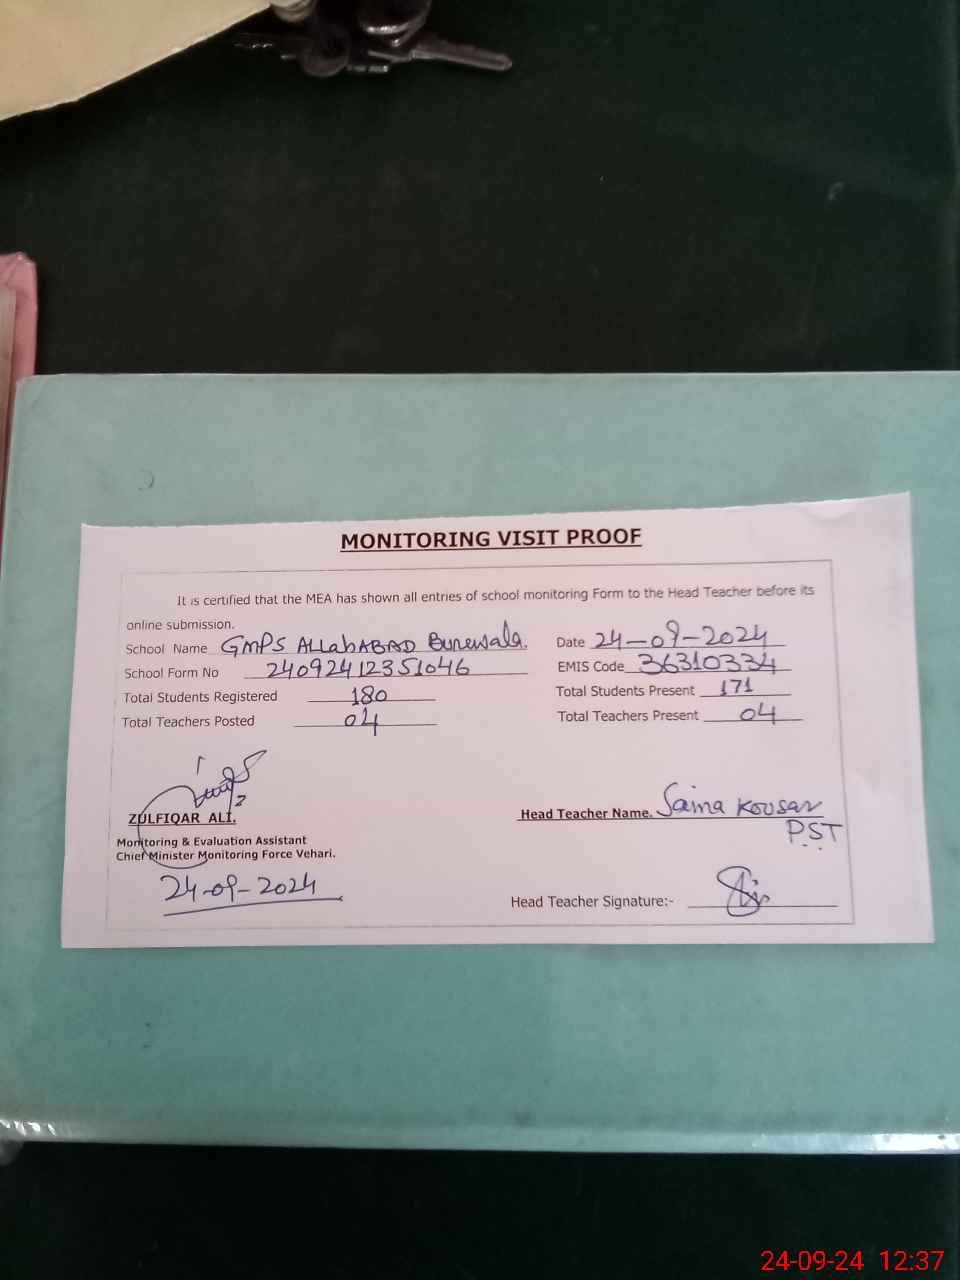 MONITORING VISIT PROOF
It is certified that the MEA has shown all entries of school monitoring Form to the Head Teacher before its
online submission.
School Name GMPS ALLahABAD Burewala. Date 24-09-2024
School Form No 24092412351046 EMIS Code 36310334
Total Students Registered 180 Total Students Present 171
Total Teachers Posted 04 Total Teachers Present 04
ZULFIQAR ALI. Head Teacher Name. Saima Kousar
PST
Monitoring & Evaluation Assistant
Chief Minister Monitoring Force Vehari.
24-09-2024
Head Teacher Signature:-
24-09-24 12:37